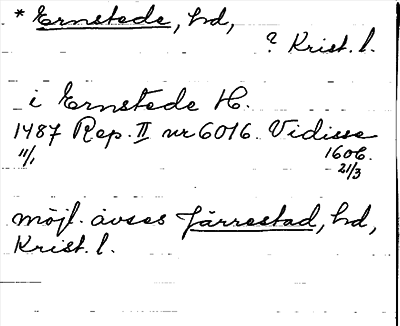 * Ernstede, hd,
? Krist. l.
i Ernstede H.
1487 Rep. II nr 6016. Vidisse
11/1 1606.
21/3
möjl. avses Järrestad, hd,
Krist. l.